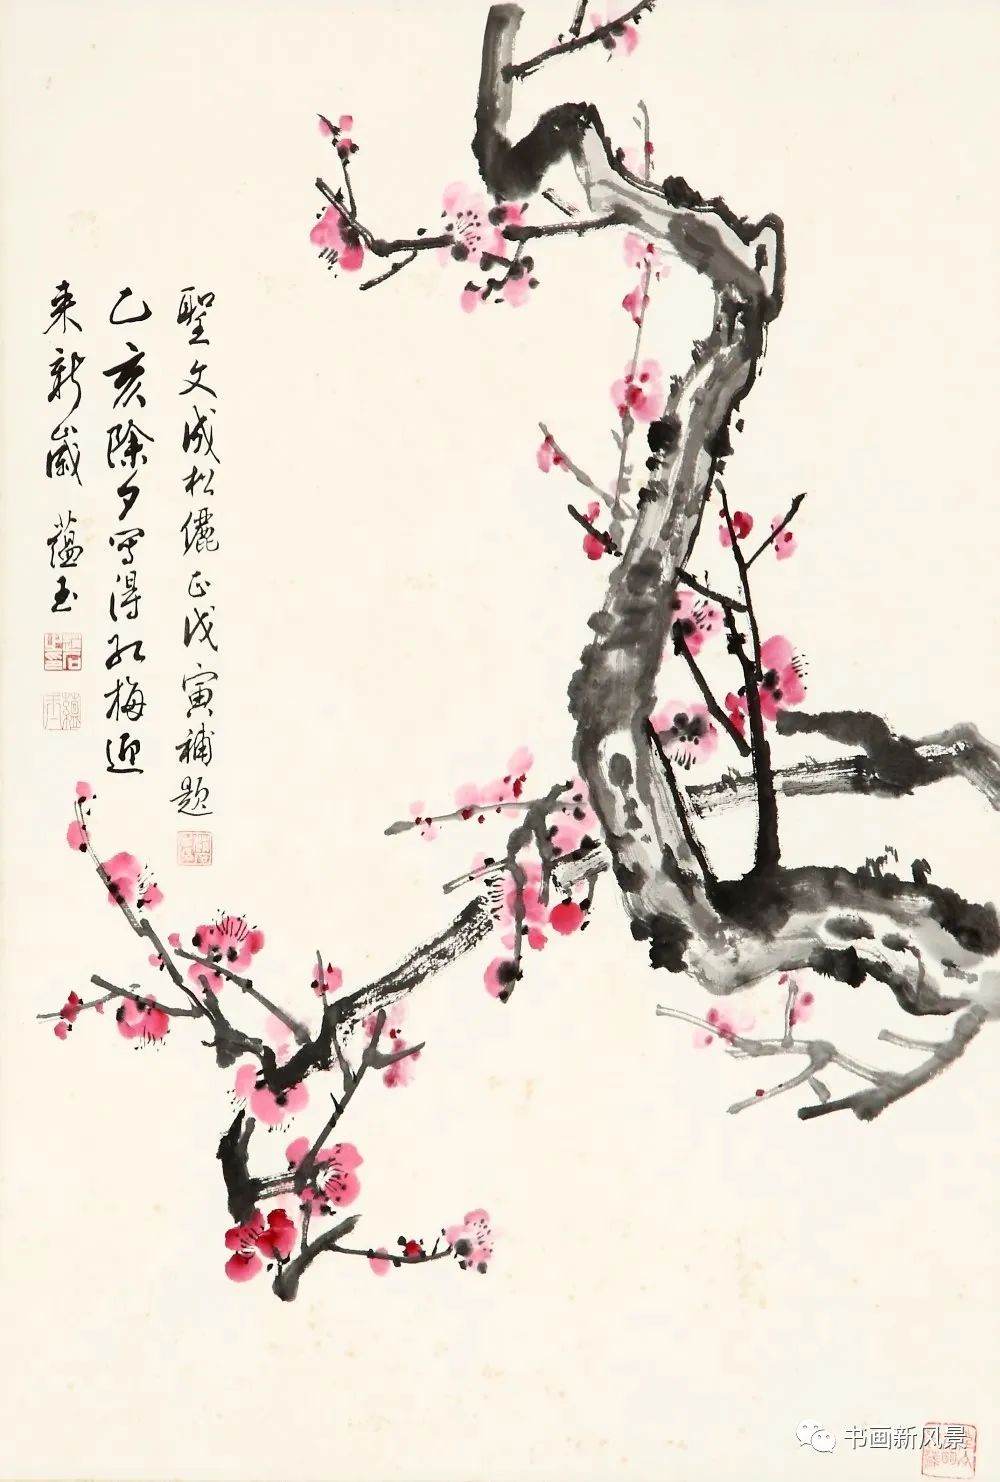 聖文成松儷正戊寅補題
乙亥除夕寫得紅梅迎
来新歲 蘊玉
书画新风景